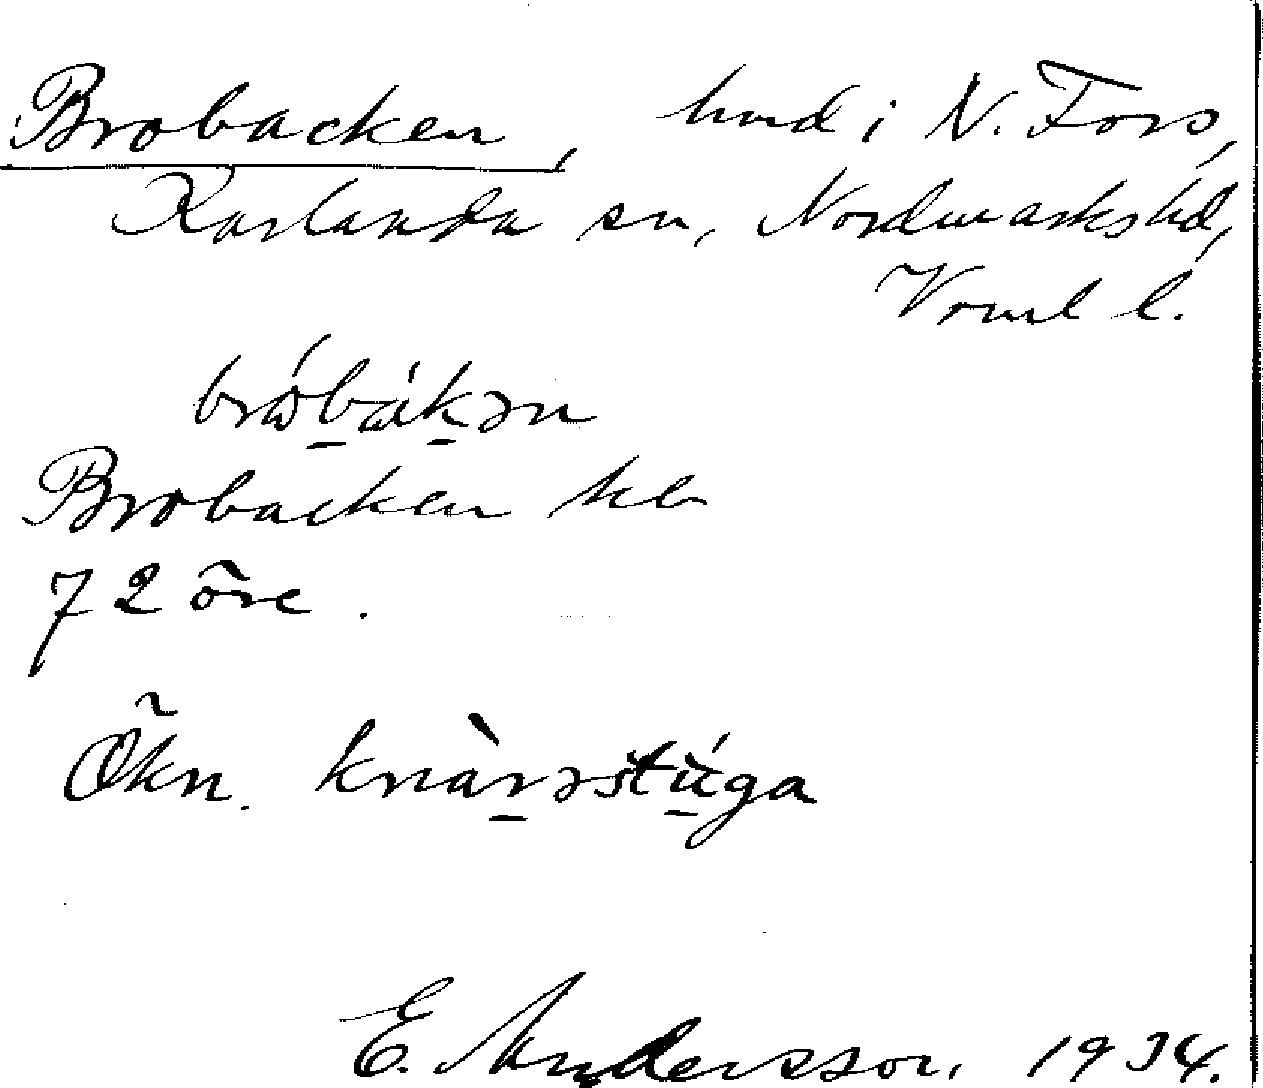 Brobacken, hmd i N. Fors,
Karlanda sn, Nordmarks hd,
Vrml l.
bròbákən
Brobacken
72 öre.
Ökn. knàrəstúga
E. Andersson, 1934.